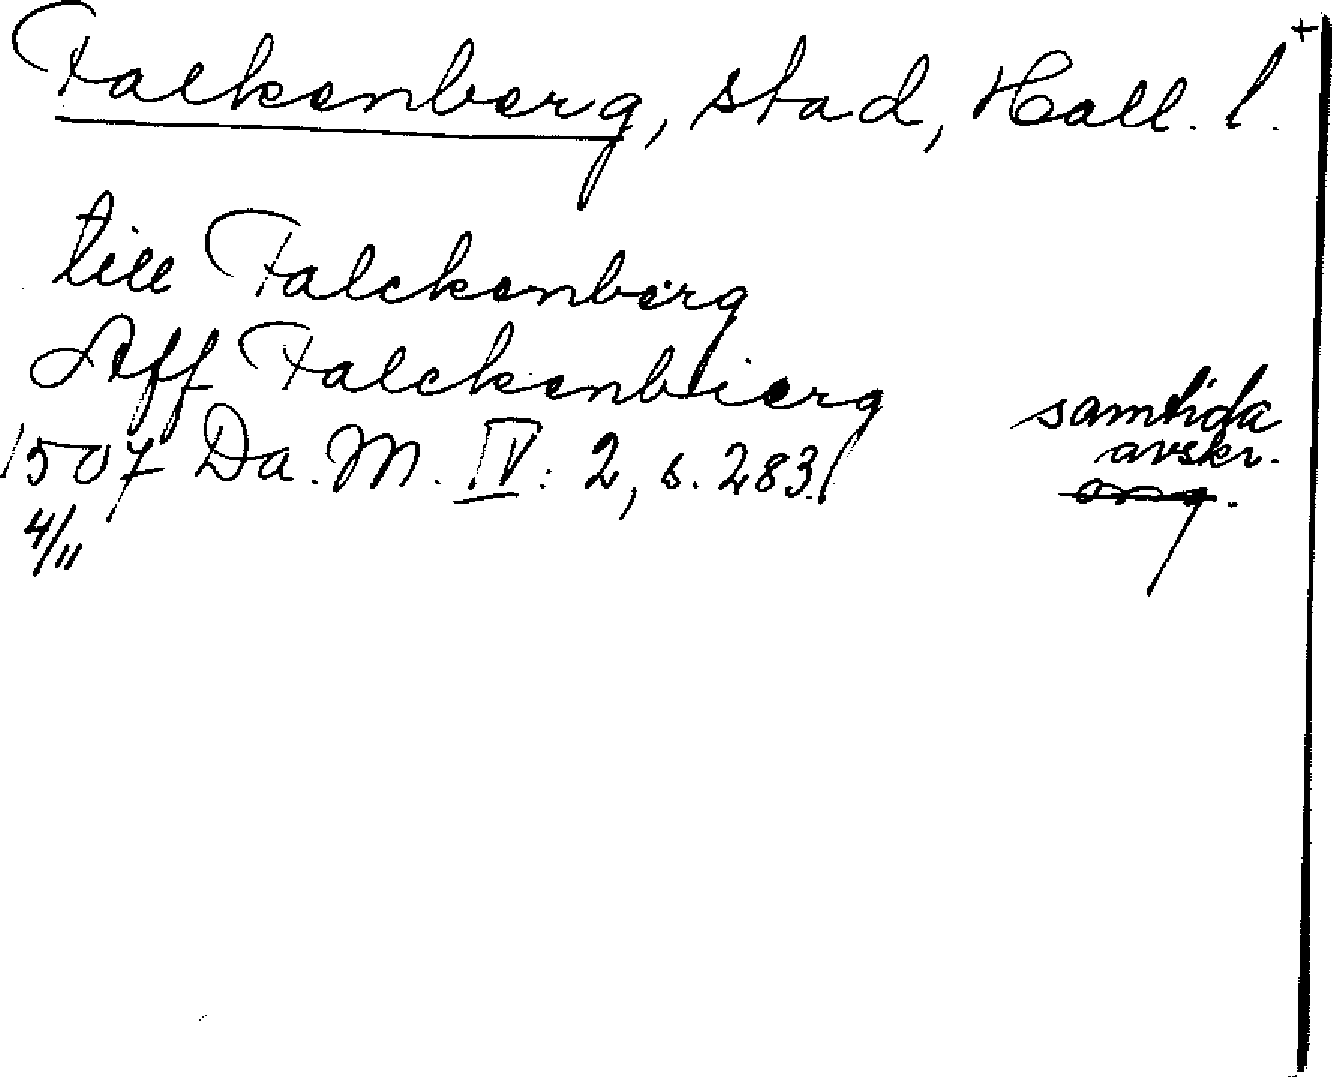 Falkenberg, stad, Hall. l. +
till Falckenberg
Aff Falckenbierg
1507 Da. M. IV: 2, s. 283.
4/11
samtida
avskr.
orig.